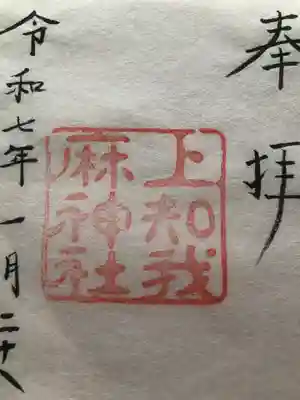 奉拝
上知我
麻神社
令和七年一月二十八